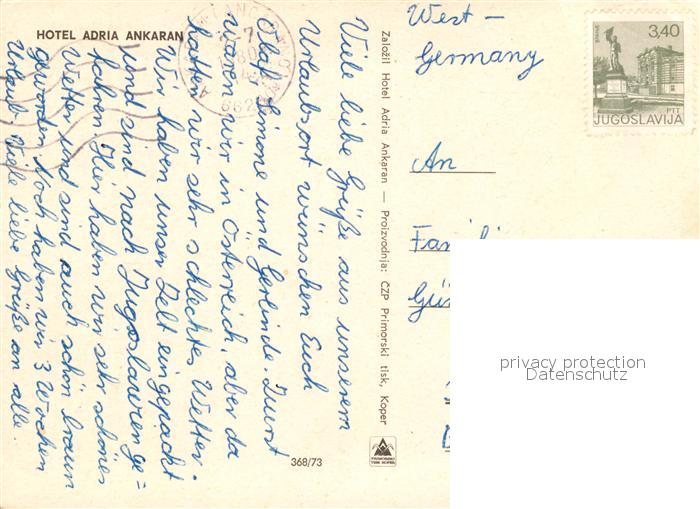 HOTEL ADRIA ANKARAN
Viele liebe Grüße aus unserem
Urlaubsort wünschen Euch
Olaf, Simone und Gerlinde. Zuerst
waren wir in Österreich, aber da
hatten wir sehr schlechtes Wetter.
Wir haben unser Zelt eingepackt
und sind nach Jugoslawien ge=
fahren. Hier haben wir sehr schönes
Wetter und sind auch schön braun
geworden. Noch haben wir 3 Wochen
Urlaub. Viele liebe Grüße an alle.
Založil Hotel Adria Ankaran — Proizvodnja: ČZP Primorski tisk, Koper
368/73
West-
Germany
An
3,40
PTT
JUGOSLAVIJA
privacy protection
Datenschutz